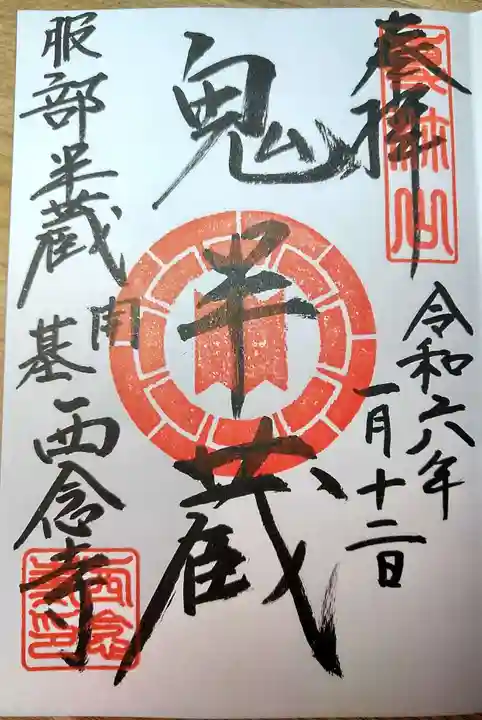 奉拝
令和六年
一月十二日
鬼半蔵
服部半蔵開基
西念寺